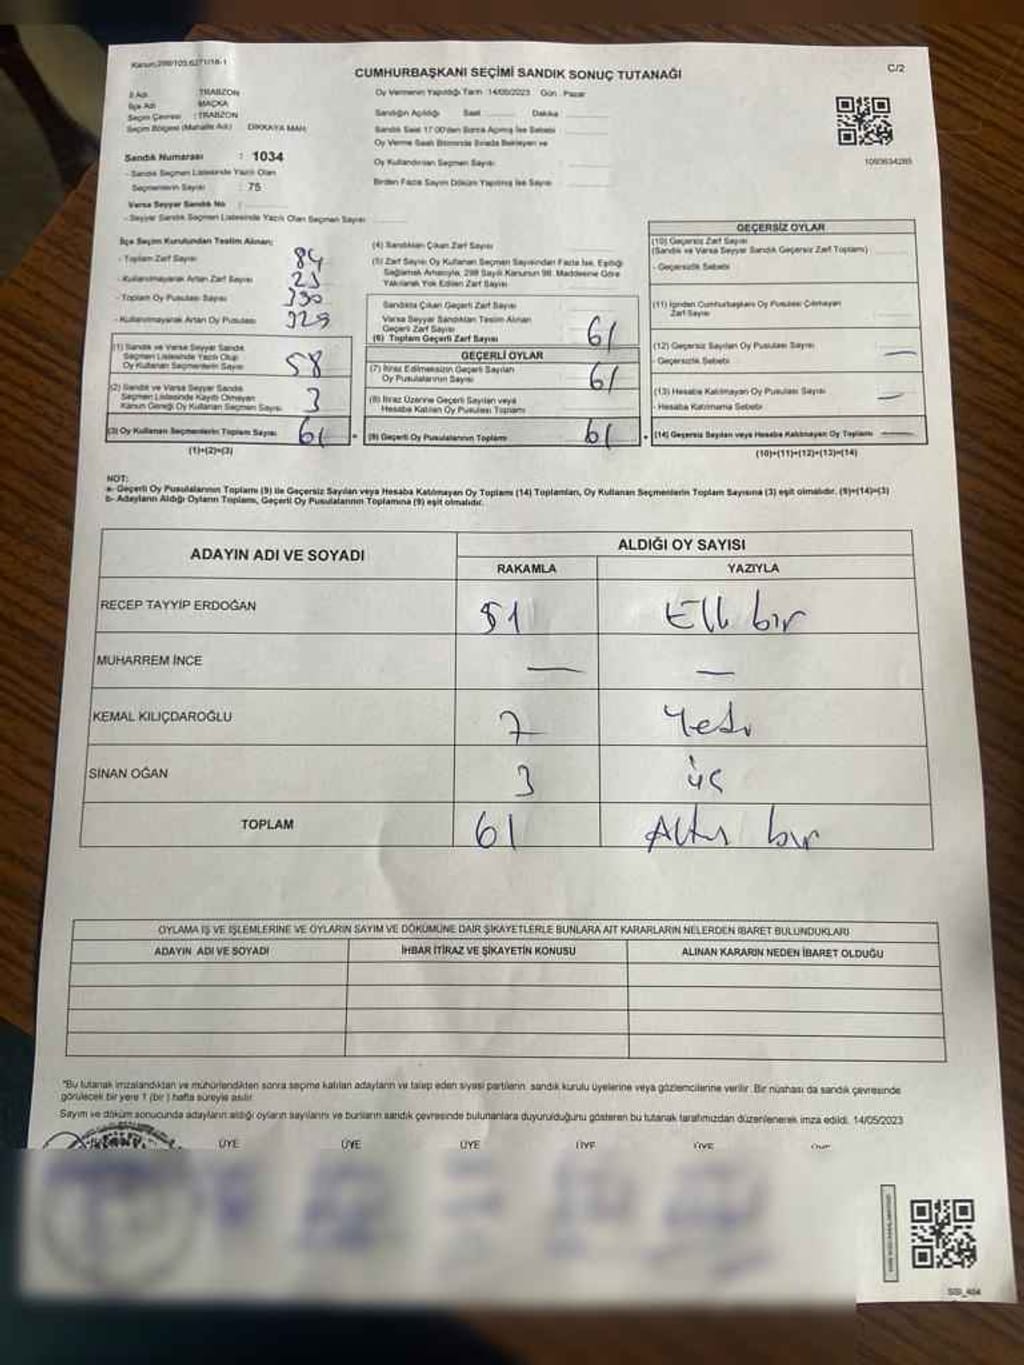 Kanun:298/103,6271/18-1
CUMHURBAŞKANI SEÇİMİ SANDIK SONUÇ TUTANAĞI
C/2
İl Adı : TRABZON
İlçe Adı : MAÇKA
Seçim Çevresi : TRABZON
Seçim Bölgesi (Mahalle Adı) : DİKKAYA MAH.
Oy Vermenin Yapıldığı Tarih : 14/05/2023 Gün : Pazar
Sandığın Açıldığı Saat Dakika
Sandık Saat 17:00'den Sonra Açılmış İse Sebebi
Oy Verme Saati Bitiminde Sırada Bekleyen ve
Oy Kullandırılan Seçmen Sayısı
Birden Fazla Sayım Döküm Yapılmış İse Sayısı
Sandık Numarası : 1034
- Sandık Seçmen Listesinde Yazılı Olan
Seçmenlerin Sayısı : 75
Varsa Seyyar Sandık No :
- Seyyar Sandık Seçmen Listesinde Yazılı Olan Seçmen Sayısı
1093634285
İlçe Seçim Kurulundan Teslim Alınan;
- Toplam Zarf Sayısı 84
- Kullanılmayarak Artan Zarf Sayısı 23
- Toplam Oy Pusulası Sayısı
- Kullanılmayarak Artan Oy Pusulası
(1) Sandık ve Varsa Seyyar Sandık
Seçmen Listesinde Yazılı Olup
Oy Kullanan Seçmenlerin Sayısı 58
(2) Sandık ve Varsa Seyyar Sandık
Seçmen Listesinde Kayıtlı Olmayan
Kanun Gereği Oy Kullanan Seçmen Sayısı 3
(3) Oy Kullanan Seçmenlerin Toplam Sayısı 61
(1)+(2)=(3)
(4) Sandıktan Çıkan Zarf Sayısı
(5) Zarf Sayısı Oy Kullanan Seçmen Sayısından Fazla İse, Eşitliği
Sağlamak Amacıyla, 298 Sayılı Kanunun 98. Maddesine Göre
Yakılarak Yok Edilen Zarf Sayısı
Sandıkta Çıkan Geçerli Zarf Sayısı
Varsa Seyyar Sandıktan Teslim Alınan
Geçerli Zarf Sayısı
(6) Toplam Geçerli Zarf Sayısı 61
GEÇERLİ OYLAR
(7) İtiraz Edilmeksizin Geçerli Sayılan
Oy Pusulalarının Sayısı 61
(8) İtiraz Üzerine Geçerli Sayılan veya
Hesaba Katılan Oy Pusulası Toplamı
(9) Geçerli Oy Pusulalarının Toplamı 61
GEÇERSİZ OYLAR
(10) Geçersiz Zarf Sayısı
(Sandık ve Varsa Seyyar Sandık Geçersiz Zarf Toplamı)
- Geçersizlik Sebebi
(11) İçinden Cumhurbaşkanı Oy Pusulası Çıkmayan
Zarf Sayısı
(12) Geçersiz Sayılan Oy Pusulası Sayısı —
- Geçersizlik Sebebi
(13) Hesaba Katılmayan Oy Pusulası Sayısı —
- Hesaba Katılmama Sebebi
(14) Geçersiz Sayılan veya Hesaba Katılmayan Oy Toplamı —
(10)+(11)+(12)+(13)=(14)
NOT:
a- Geçerli Oy Pusulalarının Toplamı (9) ile Geçersiz Sayılan veya Hesaba Katılmayan Oy Toplamı (14) Toplamları, Oy Kullanan Seçmenlerin Toplam Sayısına (3) eşit olmalıdır. (9)+(14)=(3)
b- Adayların Aldığı Oyların Toplamı, Geçerli Oy Pusulalarının Toplamına (9) eşit olmalıdır.
ADAYIN ADI VE SOYADI
ALDIĞI OY SAYISI
RAKAMLA YAZIYLA
RECEP TAYYİP ERDOĞAN 51 Elli bir
MUHARREM İNCE — —
KEMAL KILIÇDAROĞLU 7 Yedi
SİNAN OĞAN 3 üç
TOPLAM 61 Altmış bir
OYLAMA İŞ VE İŞLEMLERİNE VE OYLARIN SAYIM VE DÖKÜMÜNE DAİR ŞİKAYETLERLE BUNLARA AİT KARARLARIN NELERDEN İBARET BULUNDUKLARI
ADAYIN ADI VE SOYADI İHBAR İTİRAZ VE ŞİKAYETİN KONUSU ALINAN KARARIN NEDEN İBARET OLDUĞU
"Bu tutanak imzalandıktan ve mühürlendikten sonra seçime katılan adayların ve talep eden siyasi partilerin, sandık kurulu üyelerine veya gözlemcilerine verilir. Bir nüshası da sandık çevresinde
görülecek bir yere 1 (bir) hafta süreyle asılır.
Sayım ve döküm sonucunda adayların aldığı oyların sayılarını ve bunların sandık çevresinde bulunanlara duyurulduğunu gösteren bu tutanak tarafımızdan düzenlenerek imza edildi. 14/05/2023
ÜYE ÜYE ÜYE ÜYE ÜYE ÜYE